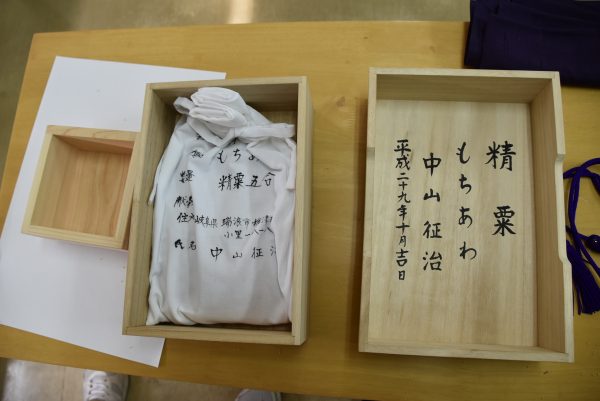 もち
精粟五合
住所 岐阜県 瑞浪市
氏名 中山征治
精粟
もちあわ
中山征治
平成二十九年十月吉日